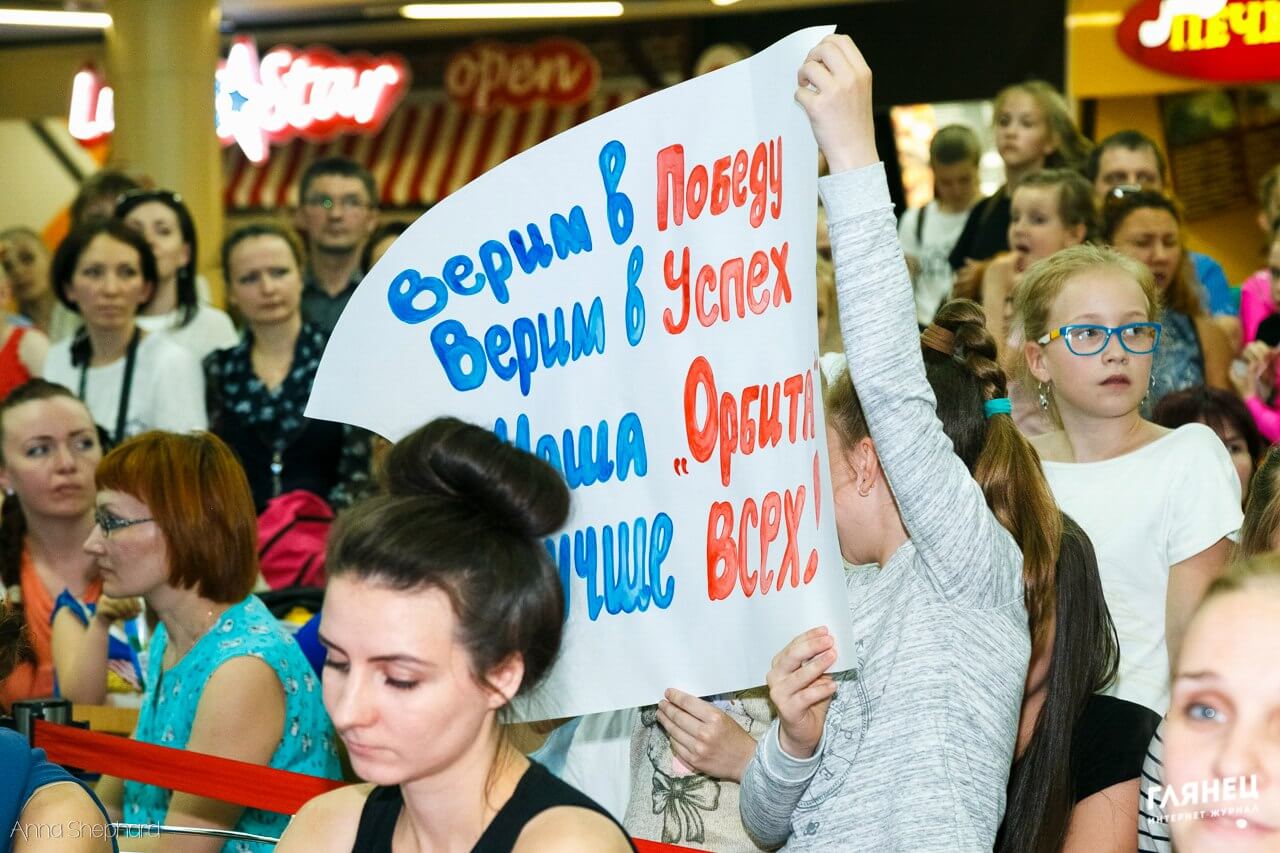 Star
open
ПЕЧ
Верим в Победу
Верим в Успех
Наша „Орбита"
учше всех!
Anna Shephard
ГЛЯНЕЦ
ИНТЕРНЕТ ЖУРНАЛ